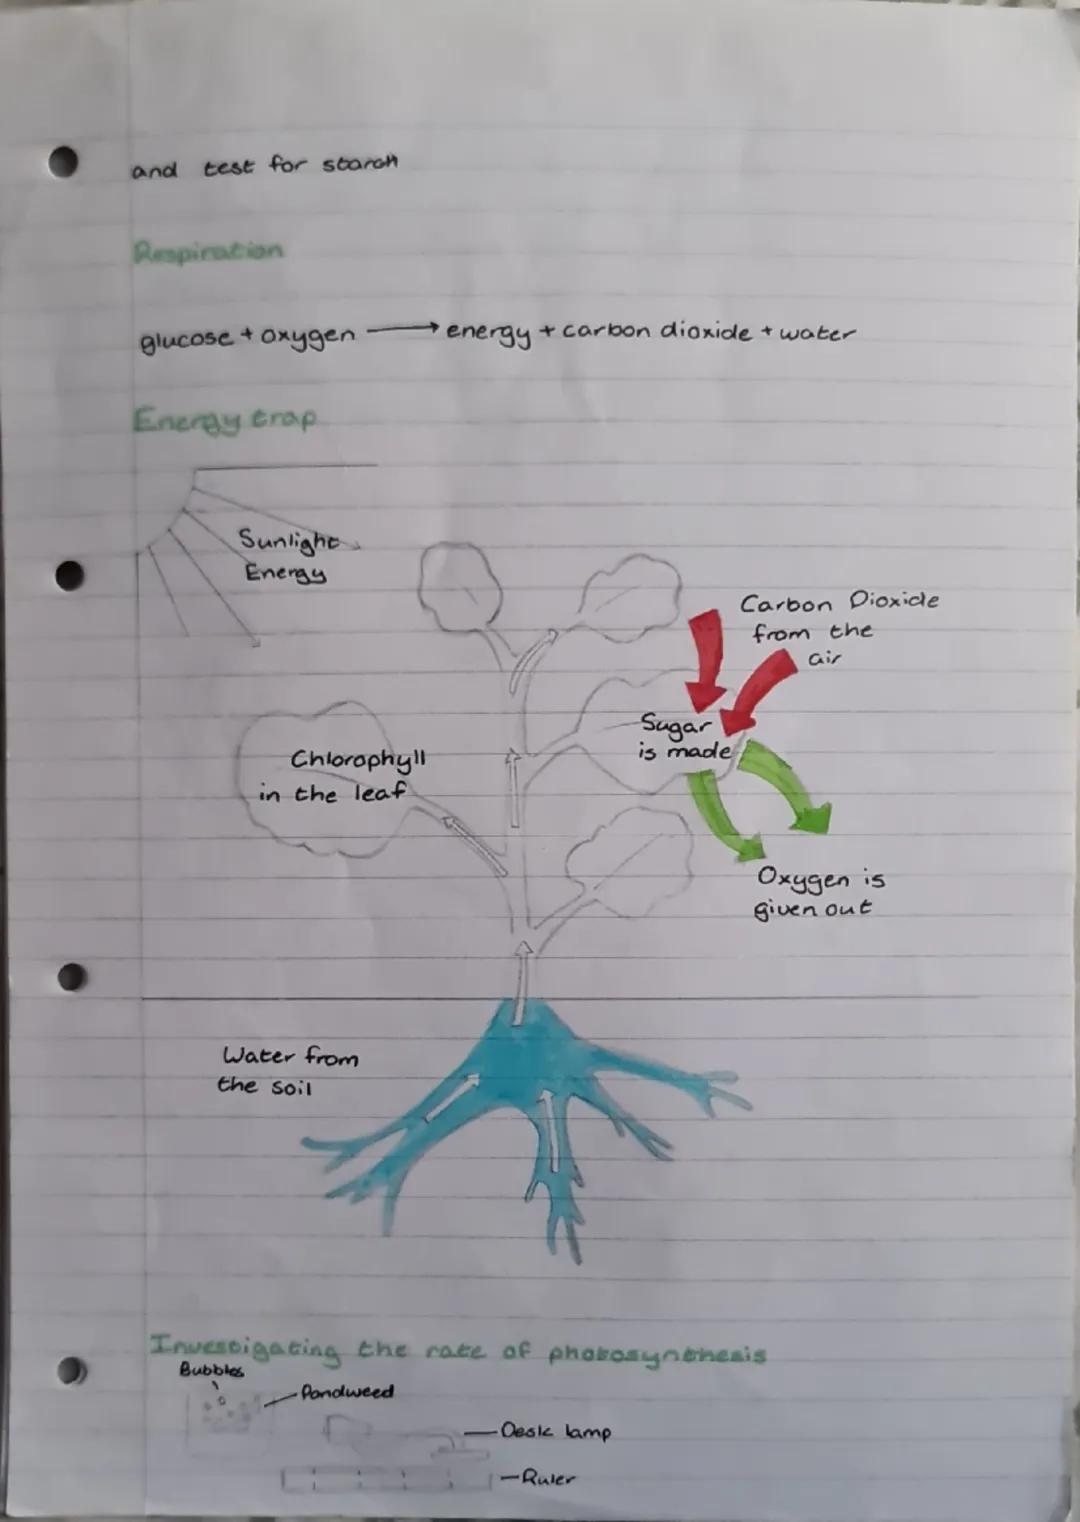 and test for starch
Respiration
glucose + oxygen → energy + carbon dioxide + water
Energy trap
Sunlight
Energy
Carbon Dioxide
from the
air
Sugar
is made
Chlorophyll
in the leaf
Oxygen is
given out
Water from
the soil
Investigating the rate of photosynthesis
Bubbles
Pondweed
Desk lamp
Ruler